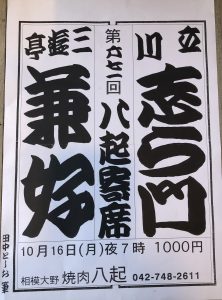 立川
志ら門
第六七一回
八起寄席
三遊亭
兼好
10月16日(月)夜7時 1000円
相模大野 焼肉八起 042-748-2611